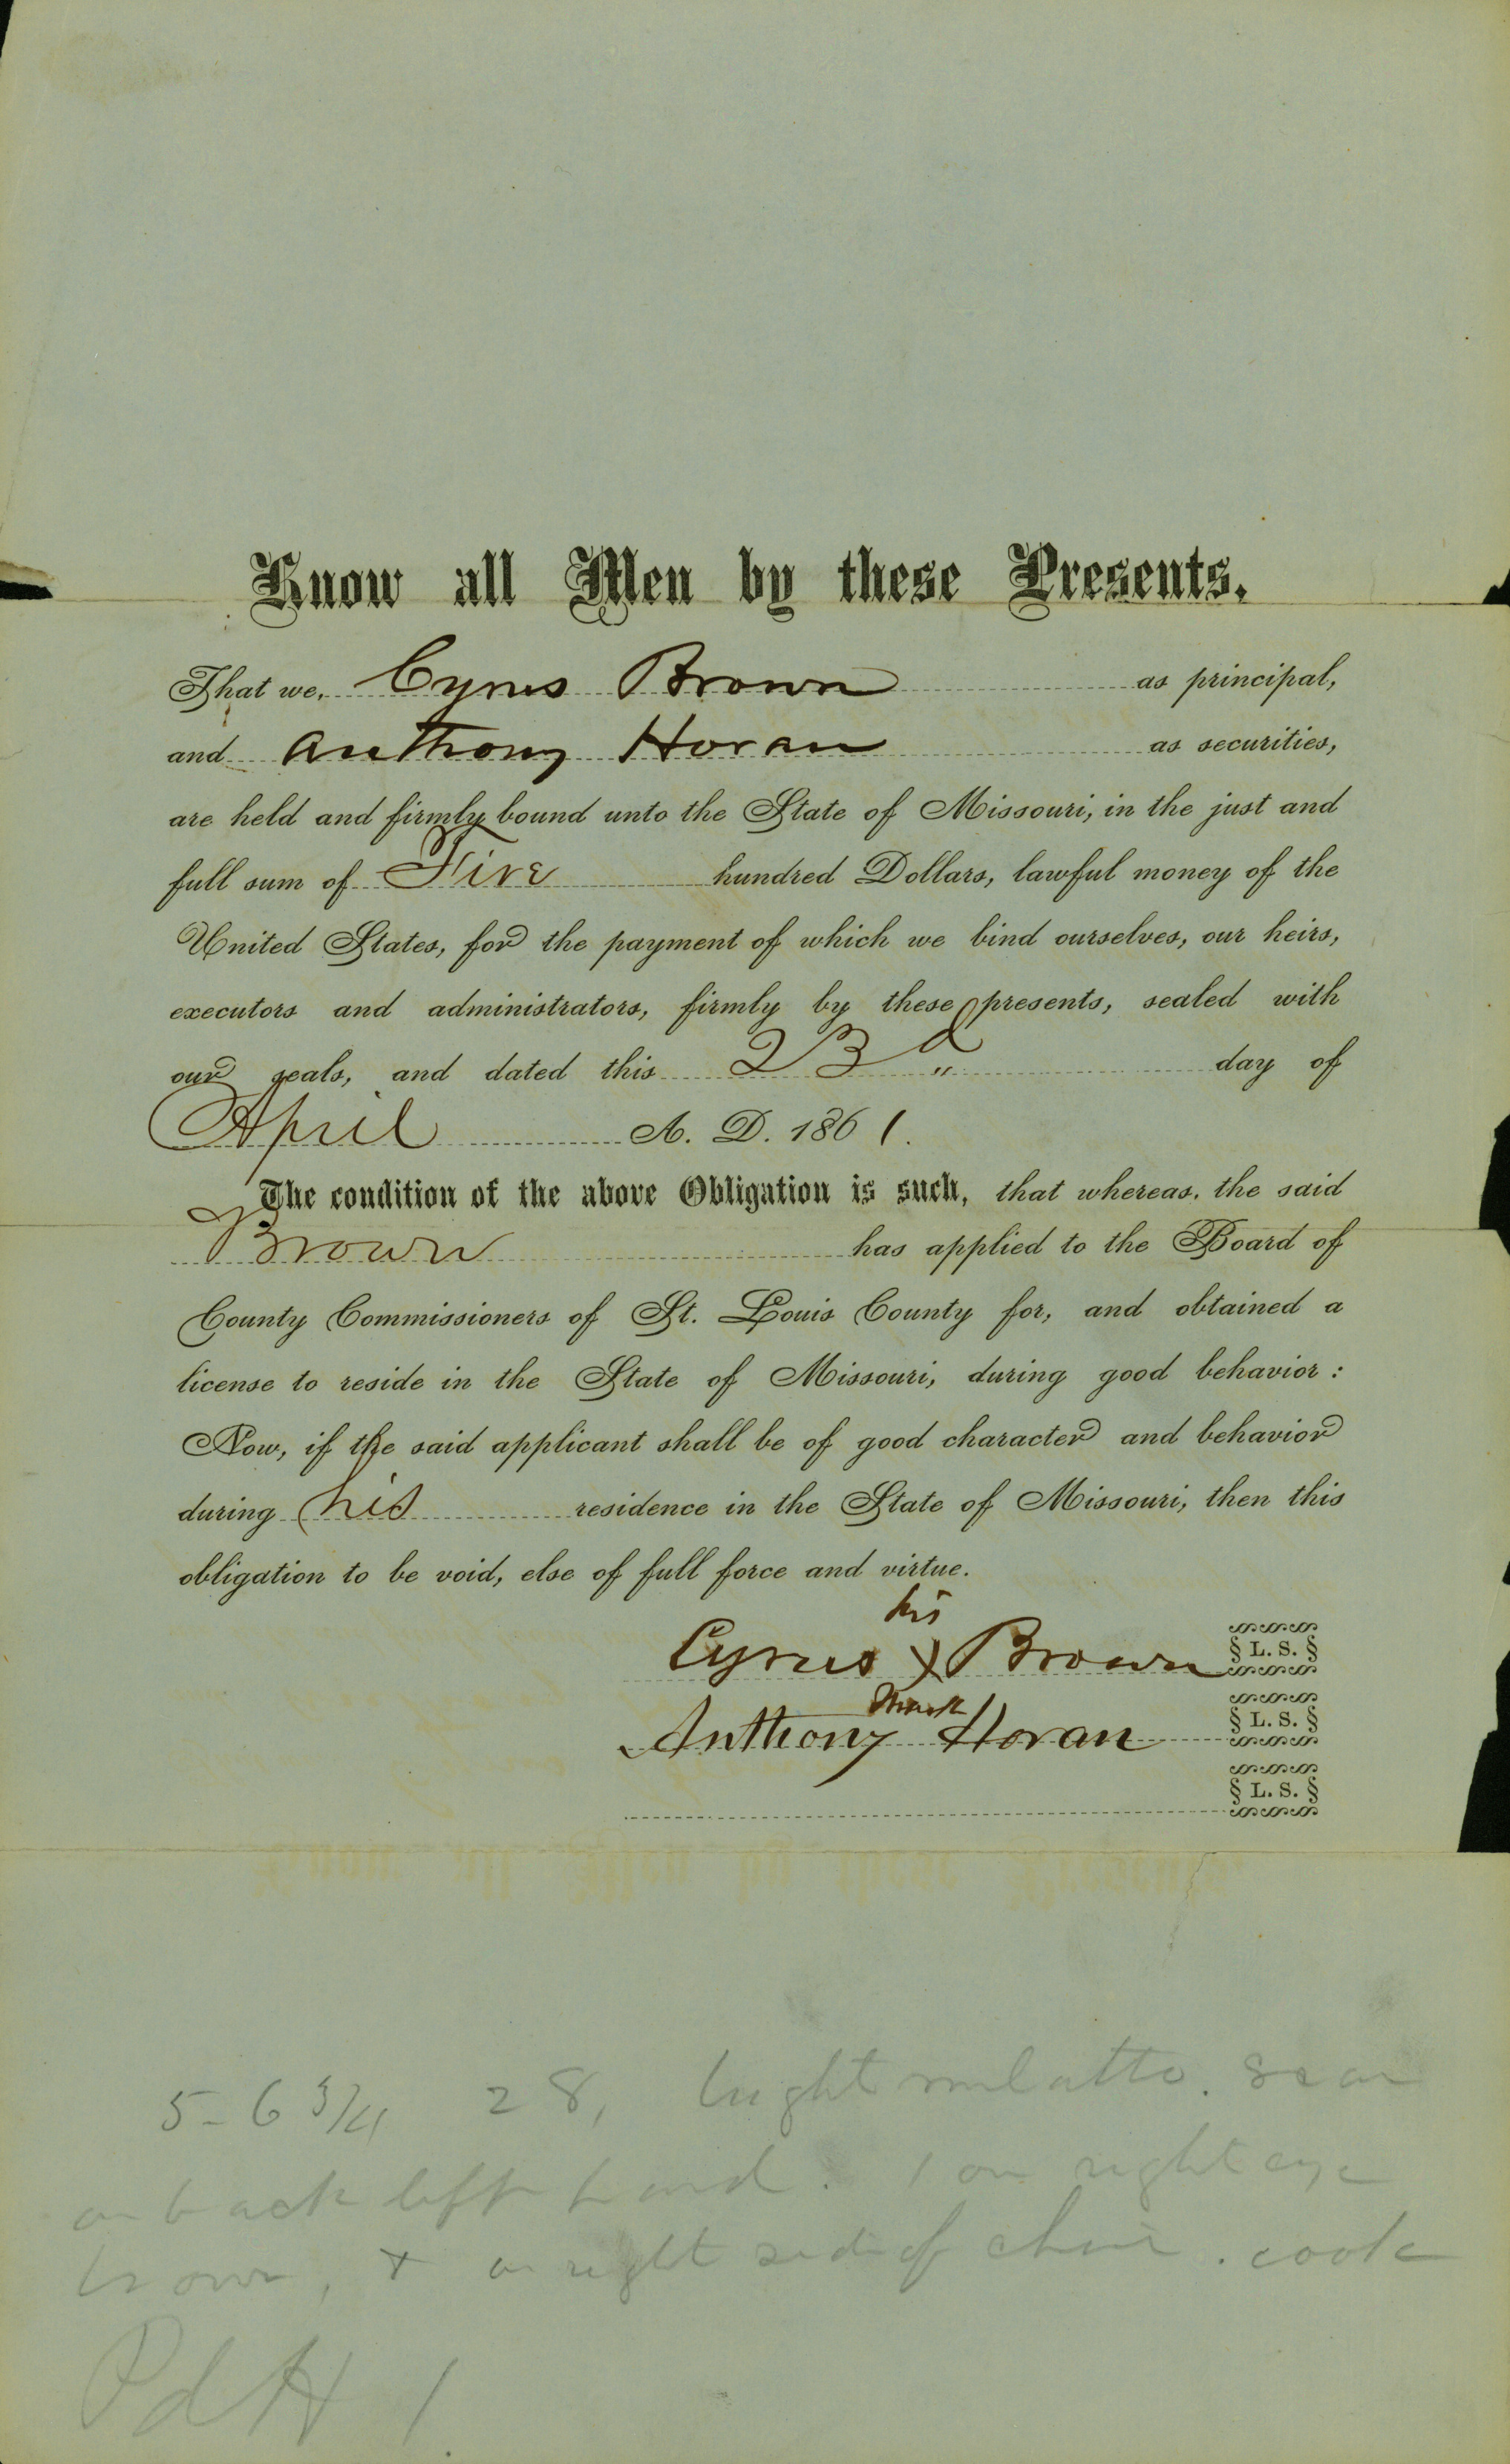 Know all Men by these Presents,
That we, Cyrus Brown as principal,
and Anthony Horan as securities,
are held and firmly bound unto the State of Missouri, in the just and
full sum of Five hundred Dollars, lawful money of the
United States, for the payment of which we bind ourselves, our heirs,
executors and administrators, firmly by these presents, sealed with
our seals, and dated this 23d day of
April A. D. 1861.
The condition of the above Obligation is such, that whereas, the said
Brown has applied to the Board of
County Commissioners of St. Louis County for, and obtained a
license to reside in the State of Missouri, during good behavior:
Now, if the said applicant shall be of good character and behavior
during his residence in the State of Missouri, then this
obligation to be void, else of full force and virtue.
his
Cyrus X Brown § L. S. §
mark
Anthony Horan § L. S. §
§ L. S. §
5-6 3/4 28, bright mulatto. scar
on back left hand. 1 on right eye
brow, + on right side of chin. cook
Pd H 1